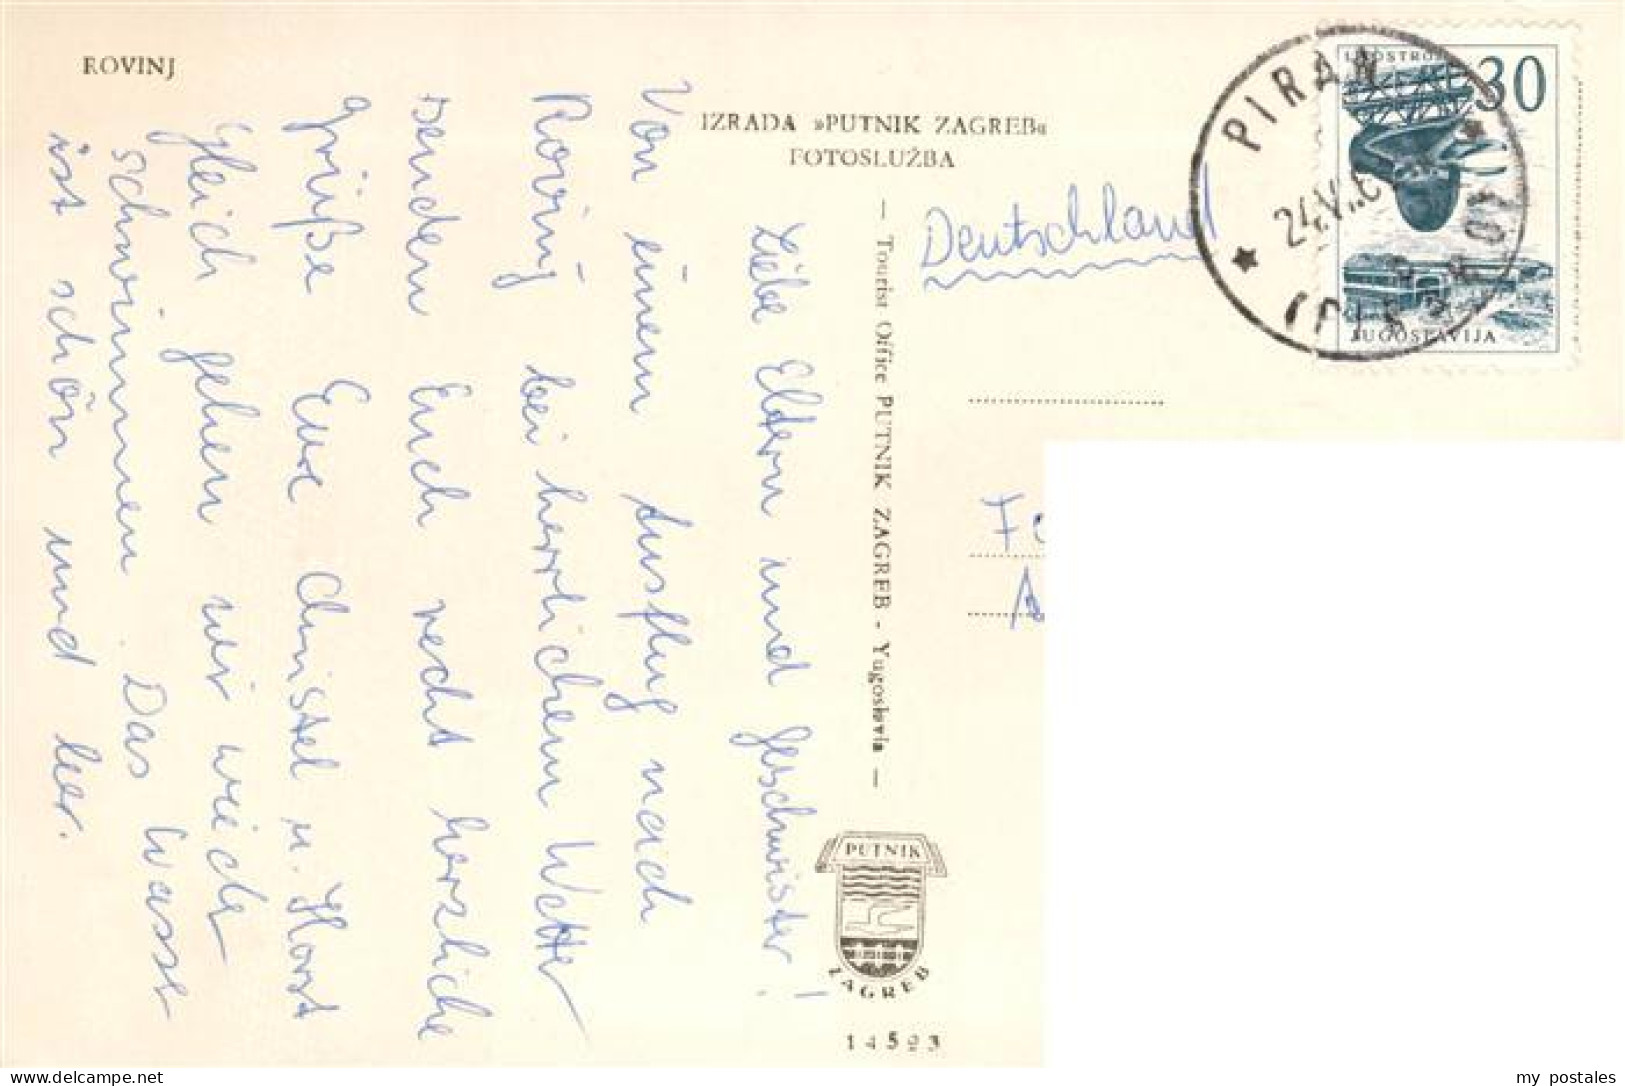 ROVINJ
Liebe Eltern und Geschwister!
Von einem Ausflug nach
Rovinj bei herrlichem Wetter
senden Euch recht herzliche
Grüße Eure Christel u. Horst
Gleich gehen wir wieder
schwimmen. Das Wasser
ist schön und leer.
IZRADA »PUTNIK ZAGREB«
FOTOSLUŽBA
— Tourist Office PUTNIK ZAGREB - Yugoslavia —
PUTNIK
ZAGREB
14523
Deutschland
PIRAN
24.V.
30
JUGOSLAVIJA
my postales